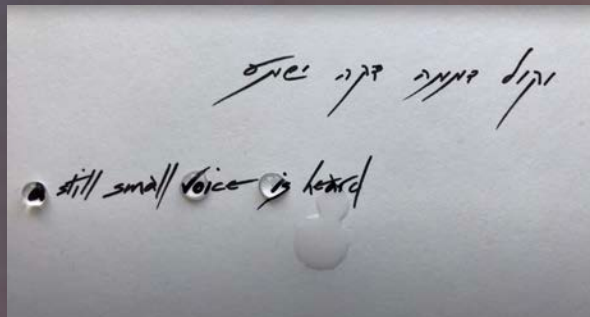 וקול דממה דקה ישמע
a still small voice is heard